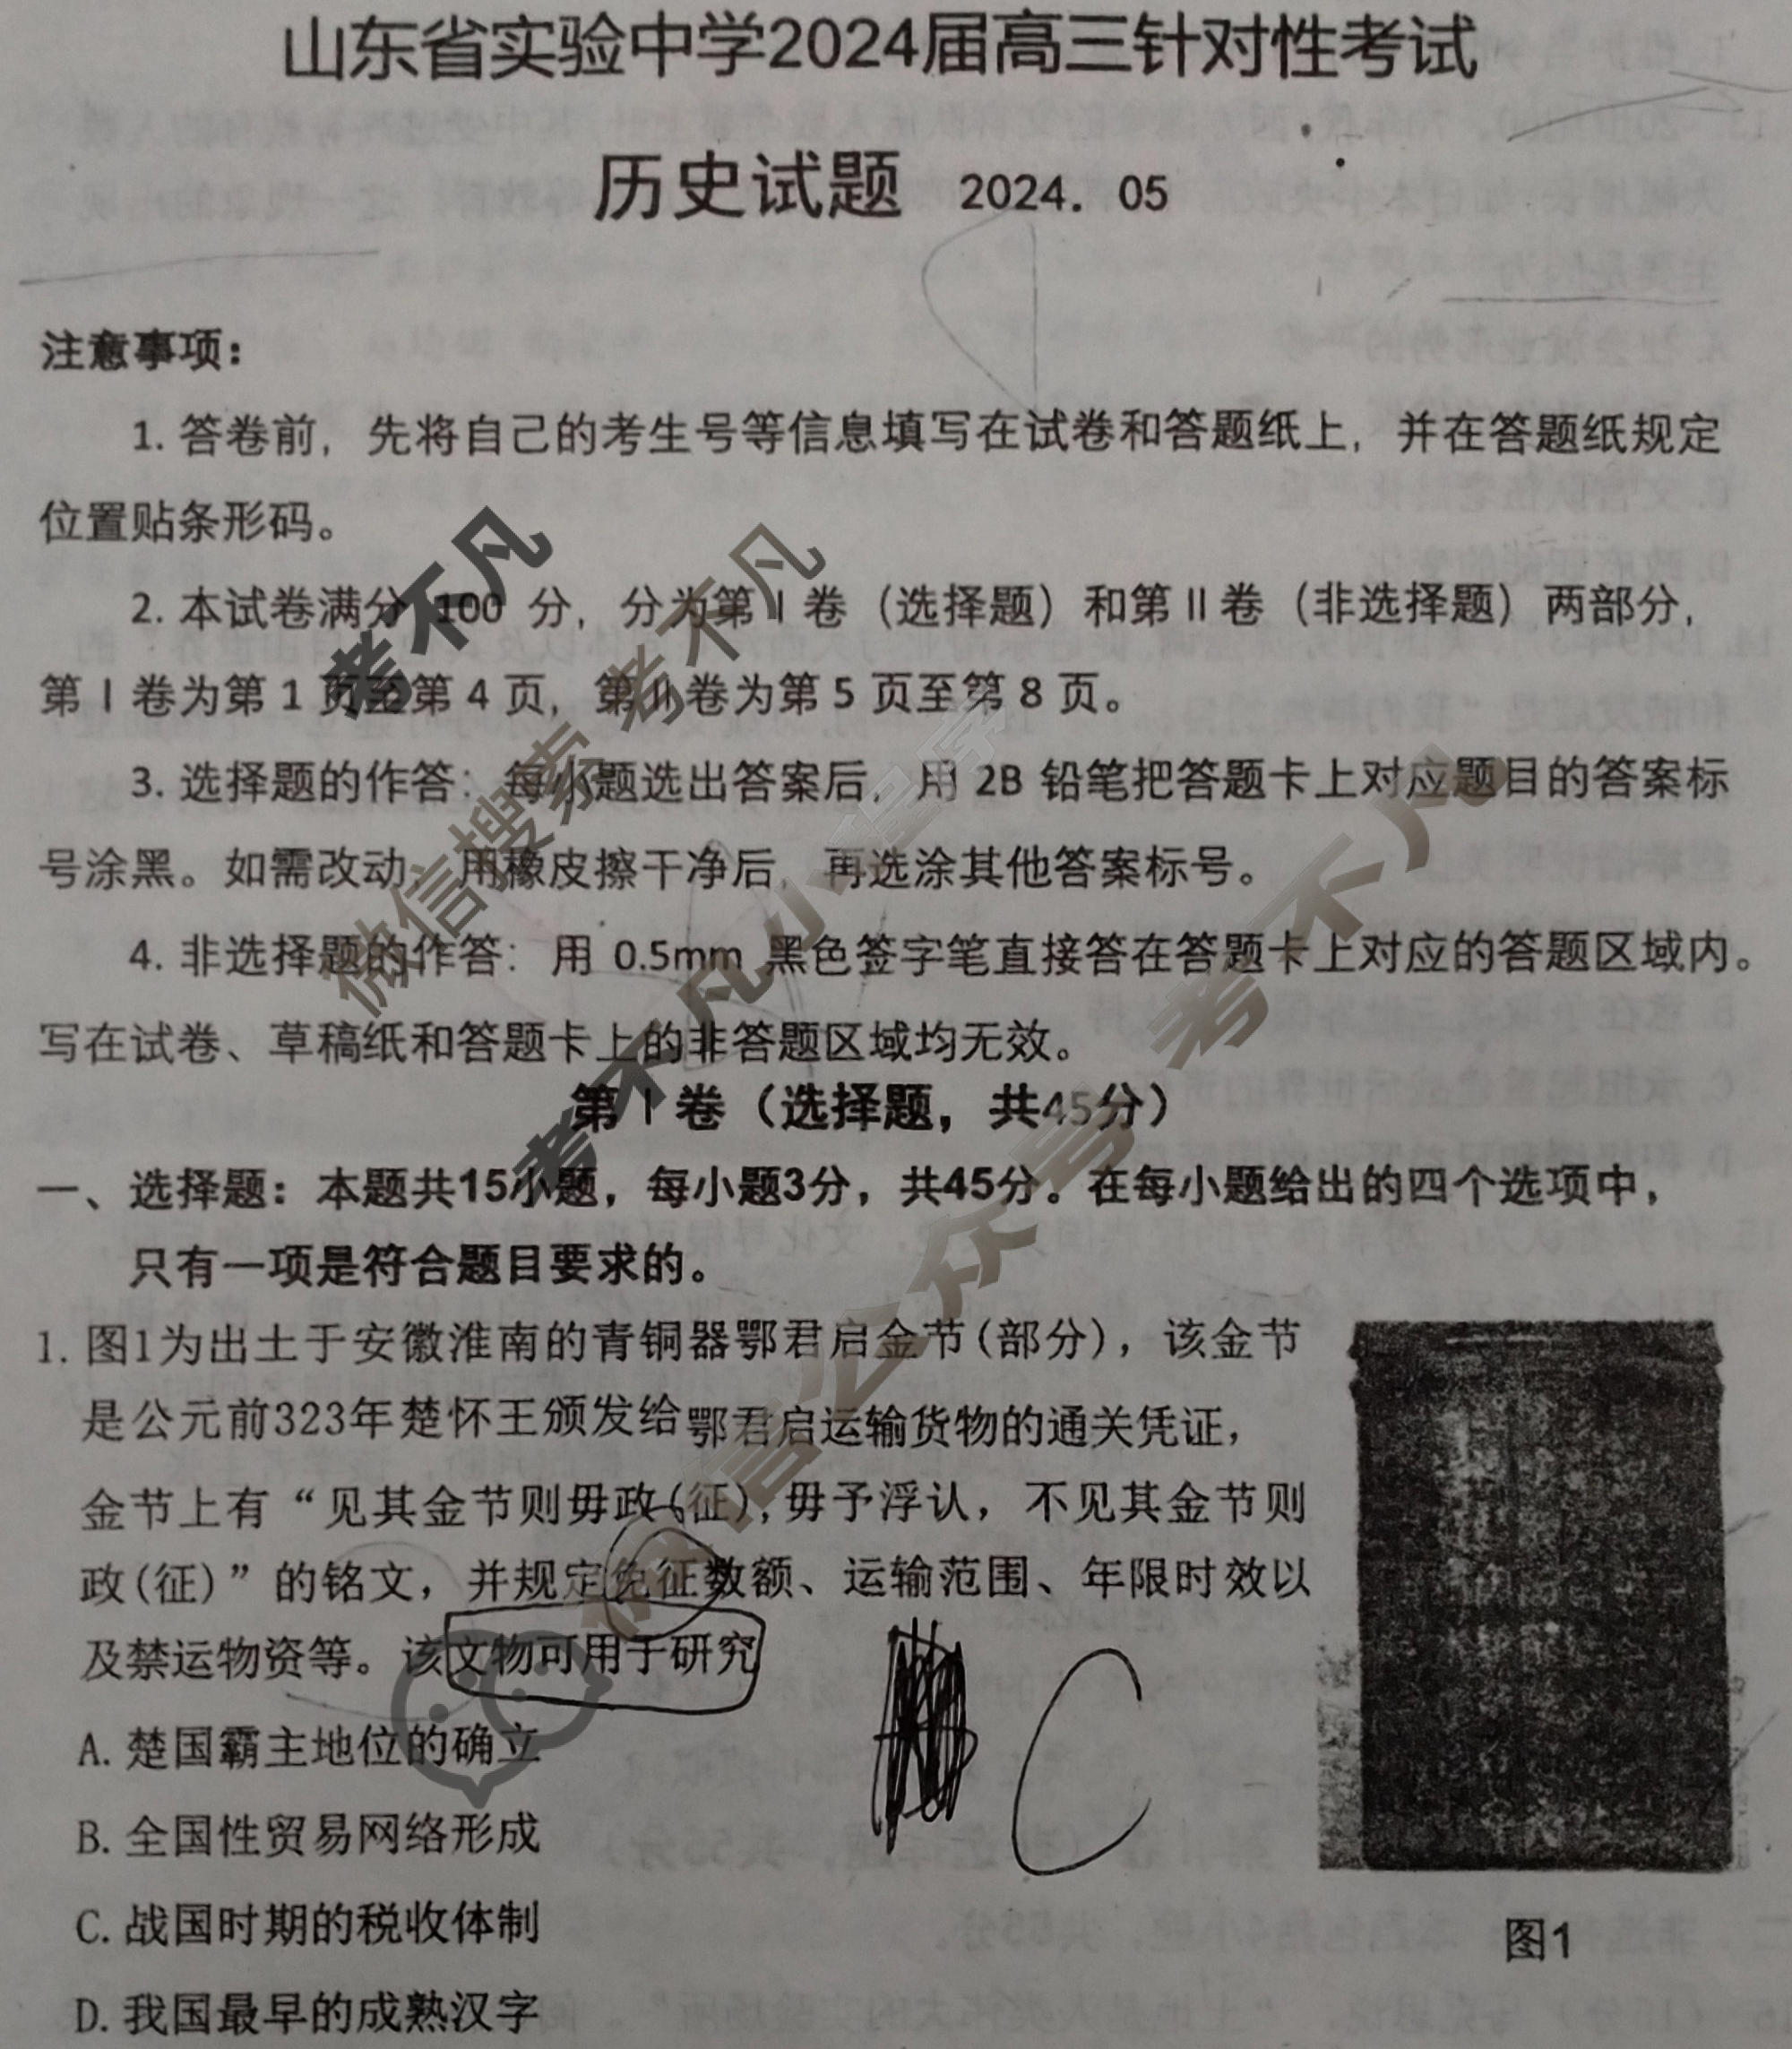 山东省实验中学2024届高三针对性考试
历史试题 2024. 05
注意事项：
1. 答卷前，先将自己的考生号等信息填写在试卷和答题纸上，并在答题纸规定
位置贴条形码。
2. 本试卷满分 100 分，分为第Ⅰ卷（选择题）和第Ⅱ卷（非选择题）两部分，
第Ⅰ卷为第 1 页至第 4 页，第Ⅱ卷为第 5 页至第 8 页。
3. 选择题的作答：每小题选出答案后，用 2B 铅笔把答题卡上对应题目的答案标
号涂黑。如需改动，用橡皮擦干净后，再选涂其他答案标号。
4. 非选择题的作答：用 0.5mm 黑色签字笔直接答在答题卡上对应的答题区域内。
写在试卷、草稿纸和答题卡上的非答题区域均无效。
第Ⅰ卷（选择题，共45分）
一、选择题：本题共15小题，每小题3分，共45分。在每小题给出的四个选项中，
只有一项是符合题目要求的。
1. 图1为出土于安徽淮南的青铜器鄂君启金节(部分)，该金节
是公元前323年楚怀王颁发给鄂君启运输货物的通关凭证，
金节上有“见其金节则毋政(征)，毋予浮认，不见其金节则
政(征)”的铭文，并规定免征数额、运输范围、年限时效以
及禁运物资等。该文物可用于研究
A. 楚国霸主地位的确立
B. 全国性贸易网络形成
C. 战国时期的税收体制
D. 我国最早的成熟汉字
C
图1
考不凡
微信搜索 考不凡
考不凡小程序
微信公众号 考不凡